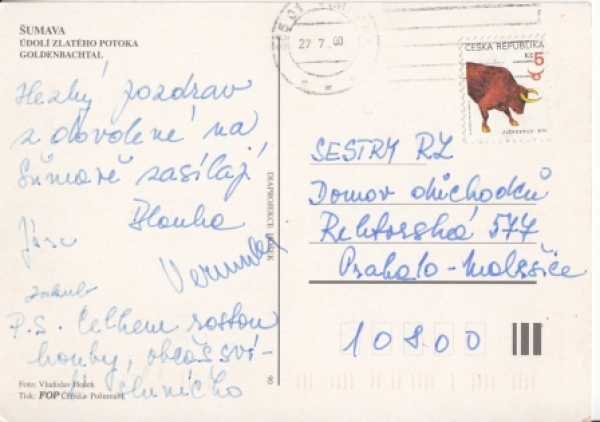 ŠUMAVA
ÚDOLÍ ZLATÉHO POTOKA
GOLDENBACHTAL
Hezký pozdrav
z dovolené na
Šumavě zasílají
Dlouhá
Jára
Jakub
P.S. Celkem rostou
houby, občas sví-
sluníčko
Foto: Vladislav Hošek
Tisk: FOP
DIAPROJEKCE HOŠEK
90
27 7. 00
ČESKÁ REPUBLIKA
Kč 5
SESTRY RL
Domov důchodců
Rektorská 577
Praha 10 - Malešice
10800